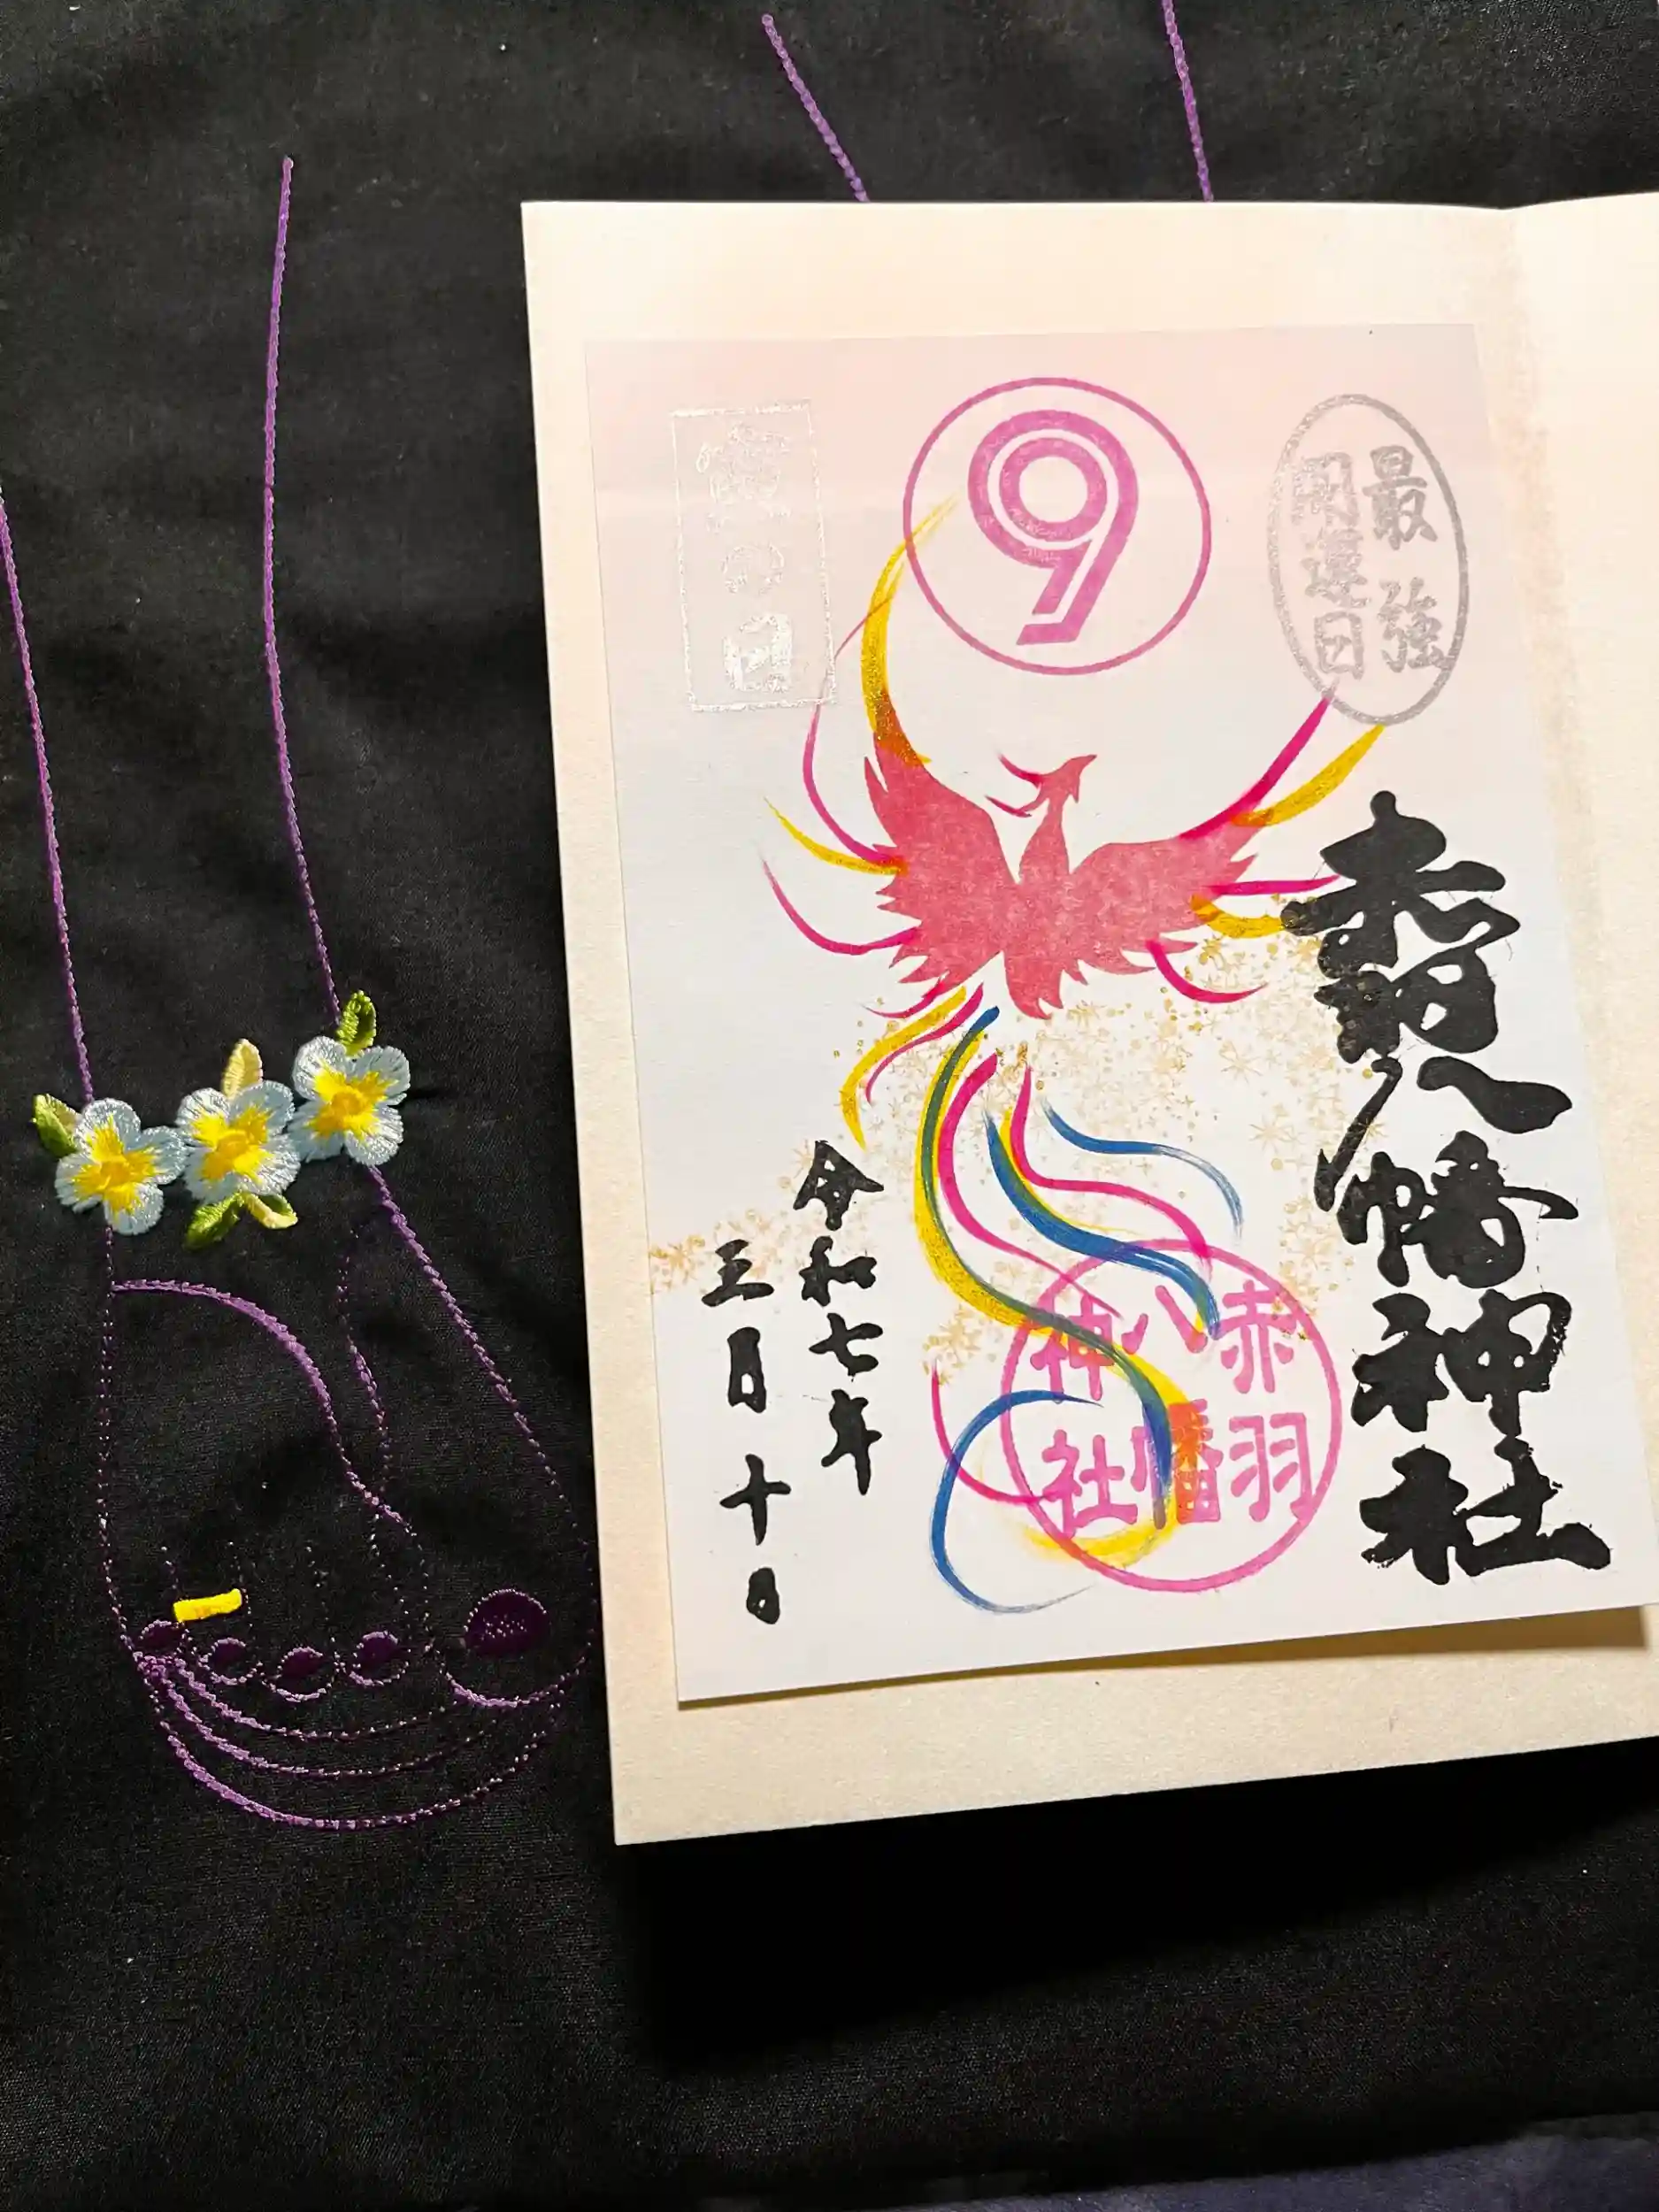 最強
開運日
9
の日
赤羽八幡神社
赤羽
八幡
神社
令和七年
三月十日